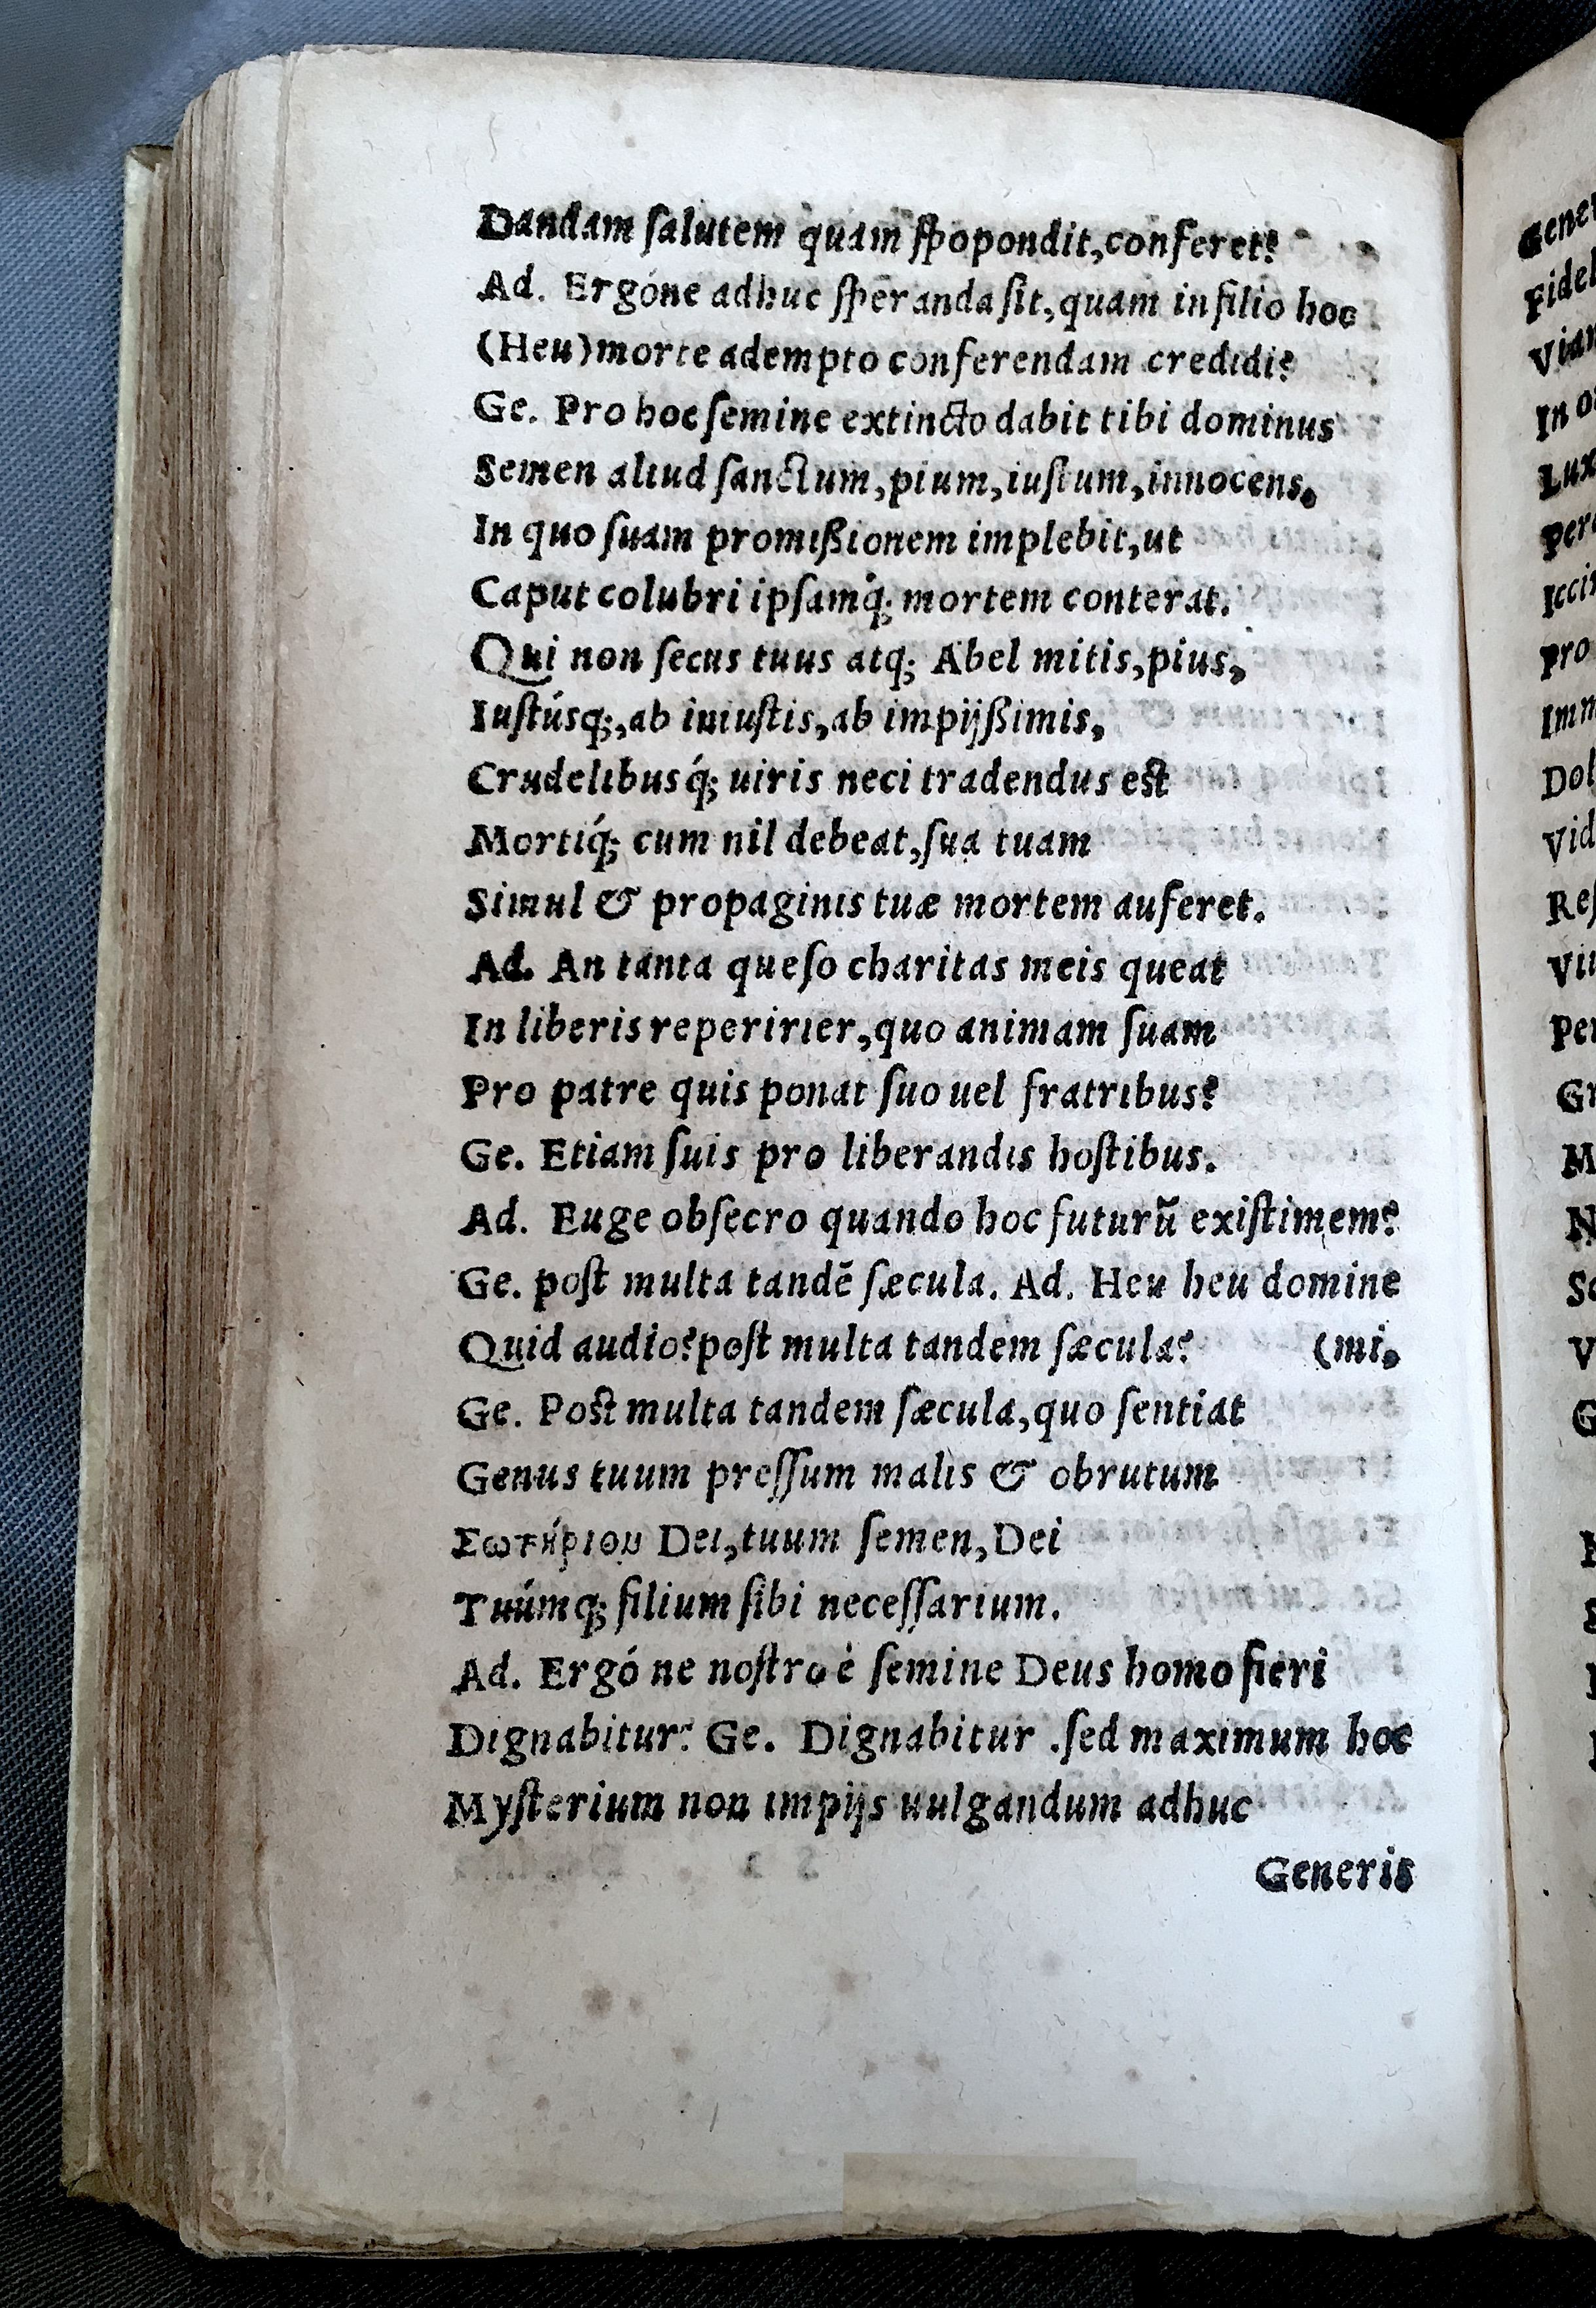 Dandam ſalutem quam ſpopondit,conferet?
Ad. Ergóne adhuc ſperanda ſit,quam in filio hoc
(Heu)morte adempto conferendam credidi?
Ge. Pro hoc ſemine extincto dabit tibi dominus
Semen aliud ſanctum,pium,iuſtum,innocens,
In quo ſuam promißionem implebit,ut
Caput colubri ipſamq́; mortem conterat.
Qui non ſecus tuus atq; Abel mitis,pius,
Iuſtúsq;,ab iniuſtis,ab impijßimis,
Crudelibusq́; uiris neci tradendus eſt
Mortiq́; cum nil debeat,ſua tuam
Simul & propaginis tuæ mortem auferet.
Ad. An tanta queſo charitas meis queat
In liberis reperirier,quo animam ſuam
Pro patre quis ponat ſuo uel fratribus?
Ge. Etiam ſuis pro liberandis hoſtibus.
Ad. Euge obſecro quando hoc futurũ exiſtimem?
Ge. poſt multa tandē ſæcula. Ad. Heu heu domine
Quid audio?poſt multa tandem ſæcula? (mi,
Ge. Poſt multa tandem ſæcula,quo ſentiat
Genus tuum preſſum malis & obrutum
Σωτήριον Dei,tuum ſemen,Dei
Tuúmq; filium ſibi neceſſarium.
Ad. Ergó ne noſtro è ſemine Deus homo fieri
Dignabitur? Ge. Dignabitur .ſed maximum hoc
Myſterium non impijs uulgandum adhuc
Generis
Fidel
In
Lux
pro
Dol